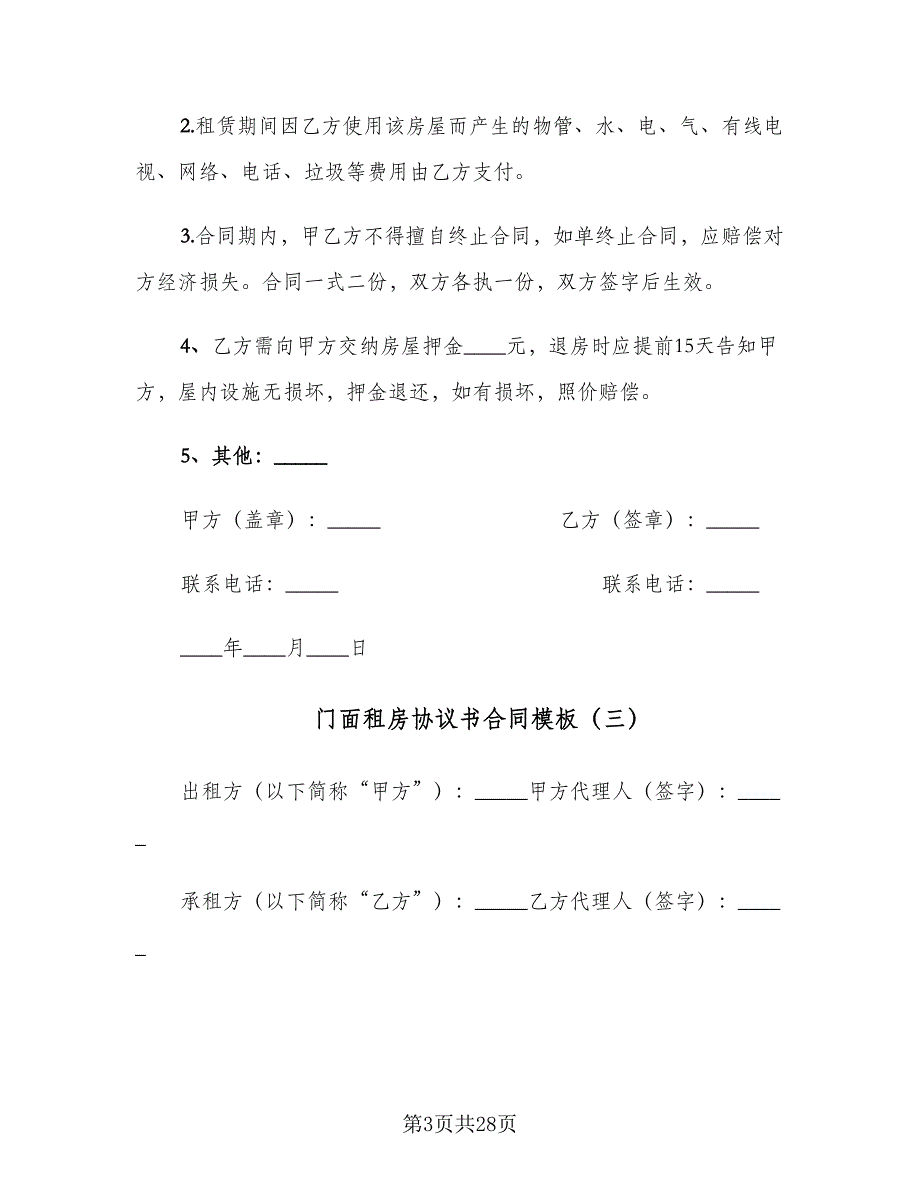 2.租赁期间因乙方使用该房屋而产生的物管、水、电、气、有线电
视、网络、电话、垃圾等费用由乙方支付。
3.合同期内，甲乙方不得擅自终止合同，如单终止合同，应赔偿对
方经济损失。合同一式二份，双方各执一份，双方签字后生效。
4、乙方需向甲方交纳房屋押金____元，退房时应提前15天告知甲
方，屋内设施无损坏，押金退还，如有损坏，照价赔偿。
5、其他：_____
甲方（盖章）：_____ 乙方（签章）：_____
联系电话：_____ 联系电话：_____
____年____月____日
门面租房协议书合同模板（三）
出租方（以下简称“甲方”）：_____甲方代理人（签字）：____
_
承租方（以下简称“乙方”）：_____乙方代理人（签字）：____
_
第3页共28页